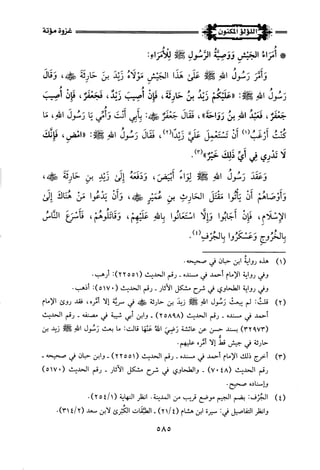 اللؤلؤ المكنون
غزوة مؤتة
* أُمَرَاءُ الجَيْشِ وَوَصِيَّةُ الرَّسُولِ ﷺ لِلْأُمَرَاءِ:
وَأَمَّرَ رَسُولُ اللهِ ﷺ عَلَى هَذَا الجَيْشِ مَوْلَاهُ زَيْدَ بنَ حَارِثَةَ ﷺ، وَقَالَ
رَسُولُ اللهِ ﷺ: «عَلَيْكُمْ زَيْدُ بنُ حَارِثَةَ، فَإِنْ أُصِيبَ زَيْدٌ، فَجَعْفَرٌ، فَإِنْ أُصِيبَ
جَعْفَرٌ، فَعَبْدُ اللهِ بنُ رَوَاحَةَ»، فَقَالَ جَعْفَرٌ ﷺ: بِأَبِي أَنْتَ وَأُمِّي يَا رَسُولَ اللهِ، مَا
كُنْتُ أَرْغَبُ(١) أَنْ تَسْتَعْمِلَ عَلَيَّ زَيْدًا(٢)، فَقَالَ رَسُولُ اللهِ ﷺ: «امْضِ، فَإِنَّكَ
لَا تَدْرِي فِي أَيِّ ذَلِكَ خَيْرٌ»(٣).
وَعَقَدَ رَسُولُ اللهِ ﷺ لِوَاءً أَبْيَضَ، وَدَفَعَهُ إِلَى زَيْدِ بنِ حَارِثَةَ ﷺ،
وَأَوْصَاهُمْ أَنْ يَأْتُوا مَقْتَلَ الحَارِثِ بنِ عُمَيْرٍ ﷺ، وَأَنْ يَدْعُوا مَنْ هُنَاكَ إِلَى
الإِسْلَامِ، فَإِنْ أَجَابُوا وَإِلَّا اسْتَعَانُوا بِاللهِ عَلَيْهِمْ، وَقَاتَلُوهُمْ، فَأَسْرَعَ النَّاسُ
بِالخُرُوجِ وَعَسْكَرُوا بِالجُرْفِ(٤).
(١) هذه روايةُ ابن حبان في صحيحه.
وفي رواية الإمام أحمد في مسنده - رقم الحديث (٢٢٥٥١): أرهب.
وفي رواية الطحاوي في شرح مشكل الآثار - رقم الحديث (٥١٧٠): أذهب.
(٢) قلتُ: لم يبعث رَسُول الله ﷺ زيد بن حارثة ﷺ في سريَّة إلا أمَّره، فقد روى الإمام
أحمد في مسنده - رقم الحديث (٢٥٨٩٨) - وابن أبي شيبة في مصنفه - رقم الحديث
(٣٢٩٧٣) بسند حسن عن عائشة رَضِيَ اللهُ عَنْهَا قالت: ما بعث رَسُول الله ﷺ زيد بن
حارثة في جيش قطُّ إلا أمَّره عليهم.
(٣) أخرج ذلك الإمام أحمد في مسنده - رقم الحديث (٢٢٥٥١) - وابن حبان في صحيحه -
رقم الحديث (٧٠٤٨) - والطحاوي في شرح مشكل الآثار - رقم الحديث (٥١٧٠)
وإسناده صحيح.
(٤) الجُرْف: بضم الجيم موضع قريب من المدينة. انظر النهاية (٢٥٤/١).
وانظر التفاصيل في: سيرة ابن هشام (٢١/٤) - الطَّبَقَات الكُبْرى لابن سعد (٣١٤/٢).
٥٨٥